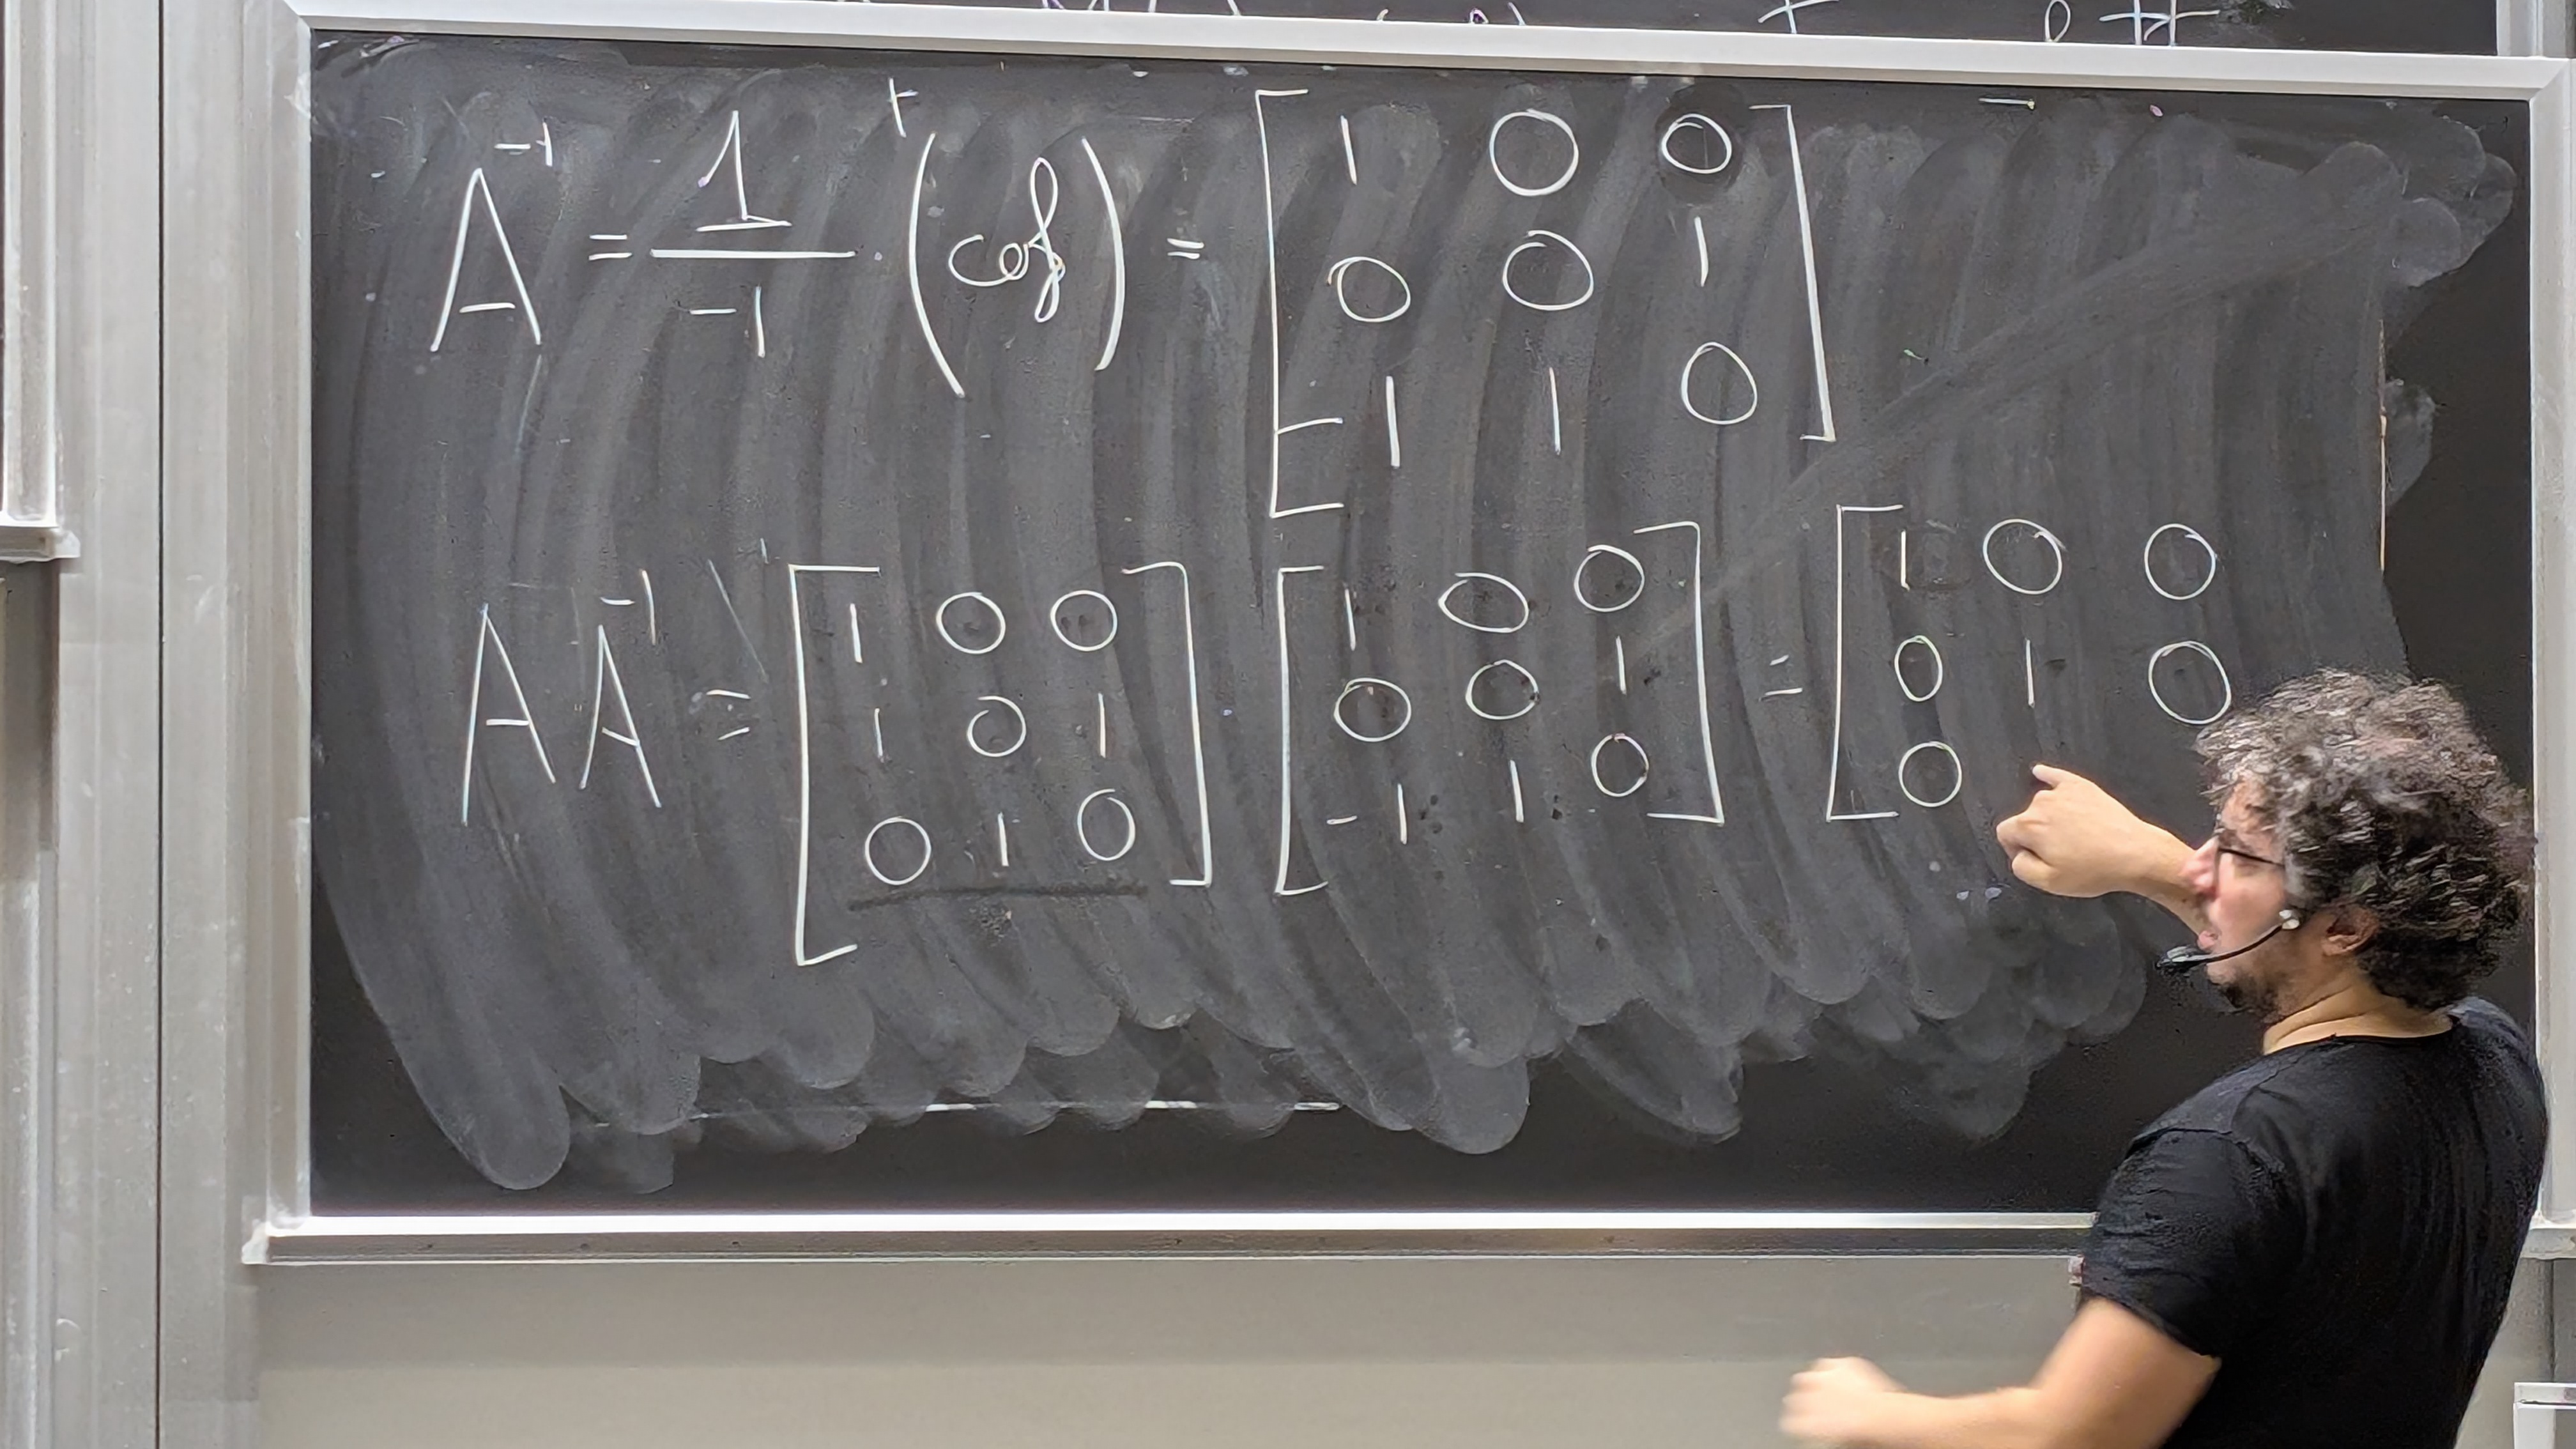 A⁻¹ = 1/-1 · ᵗ(cof) = [1 0 0
0 0 1
-1 1 0]
A A⁻¹ = [1 0 0 [1 0 0 = [1 0 0
1 0 1 0 0 1 0 1 0
0 1 0] -1 1 0] 0